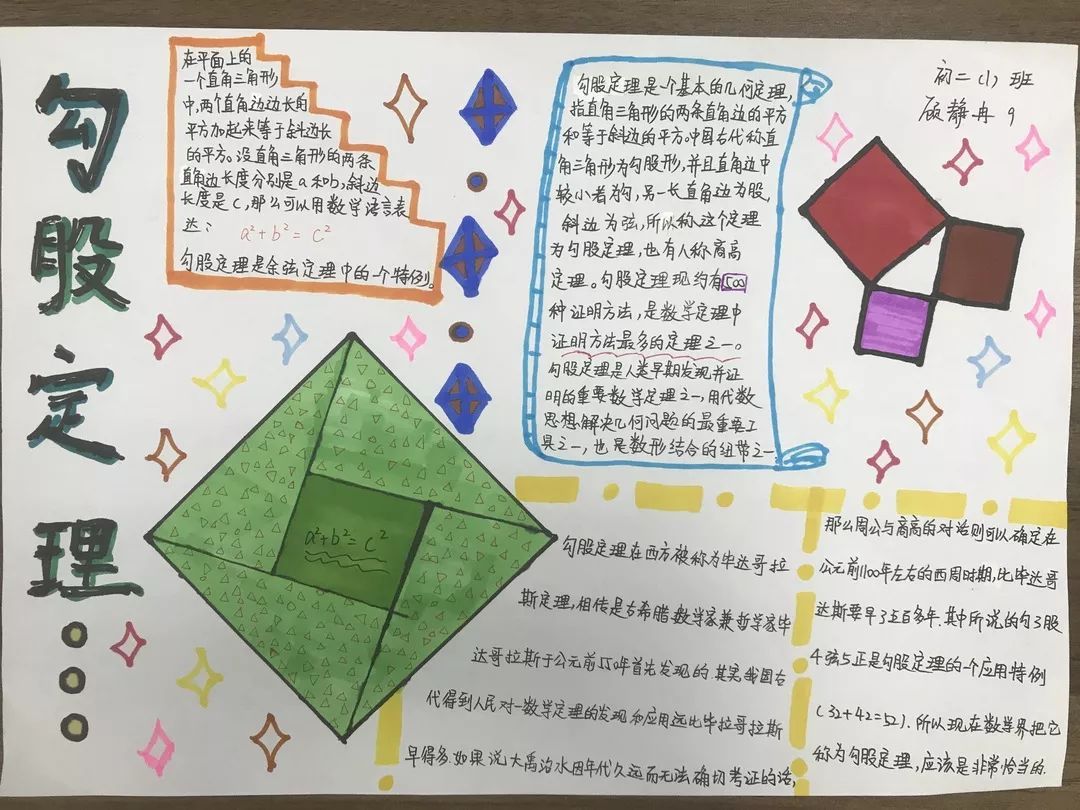 勾股定理
在平面上的
一个直角三角形
中,两个直角边边长的
平方加起来等于斜边长
的平方。设直角三角形的两条
直角边长度分别是a和b,斜边
长度是c,那么可以用数学语言表
达:
a²+b²=c²
勾股定理是余弦定理中的一个特例。
勾股定理是一个基本的几何定理,
指直角三角形的两条直角边的平方
和等于斜边的平方。中国古代称直
角三角形为勾股形,并且直角边中
较小者为勾,另一长直角边为股,
斜边为弦,所以称这个定理
为勾股定理,也有人称商高
定理。勾股定理现约有500
种证明方法,是数学定理中
证明方法最多的定理之一。
勾股定理是人类早期发现并证
明的重要数学定理之一,用代数
思想解决几何问题的最重要工
具之一,也是数形结合的纽带之一
初二(1)班
顾静冉 9
a²+b²=c²
勾股定理在西方被称为毕达哥拉
斯定理,相传是古希腊数学家兼哲学家毕
达哥拉斯于公元前550年首先发现的.其实我国古
代得到人民对一数学定理的发现和应用远比毕拉哥拉斯
早得多.如果说大禹治水因年代久远而无法确切考证的话,
那么周公与商高的对话则可以确定在
公元前1100年左右的西周时期,比毕达哥
达斯要早了五百多年.其中所说的勾3股
4弦5正是勾股定理的一个应用特例
(32+42=52).所以现在数学界把它
称为勾股定理,应该是非常恰当的.